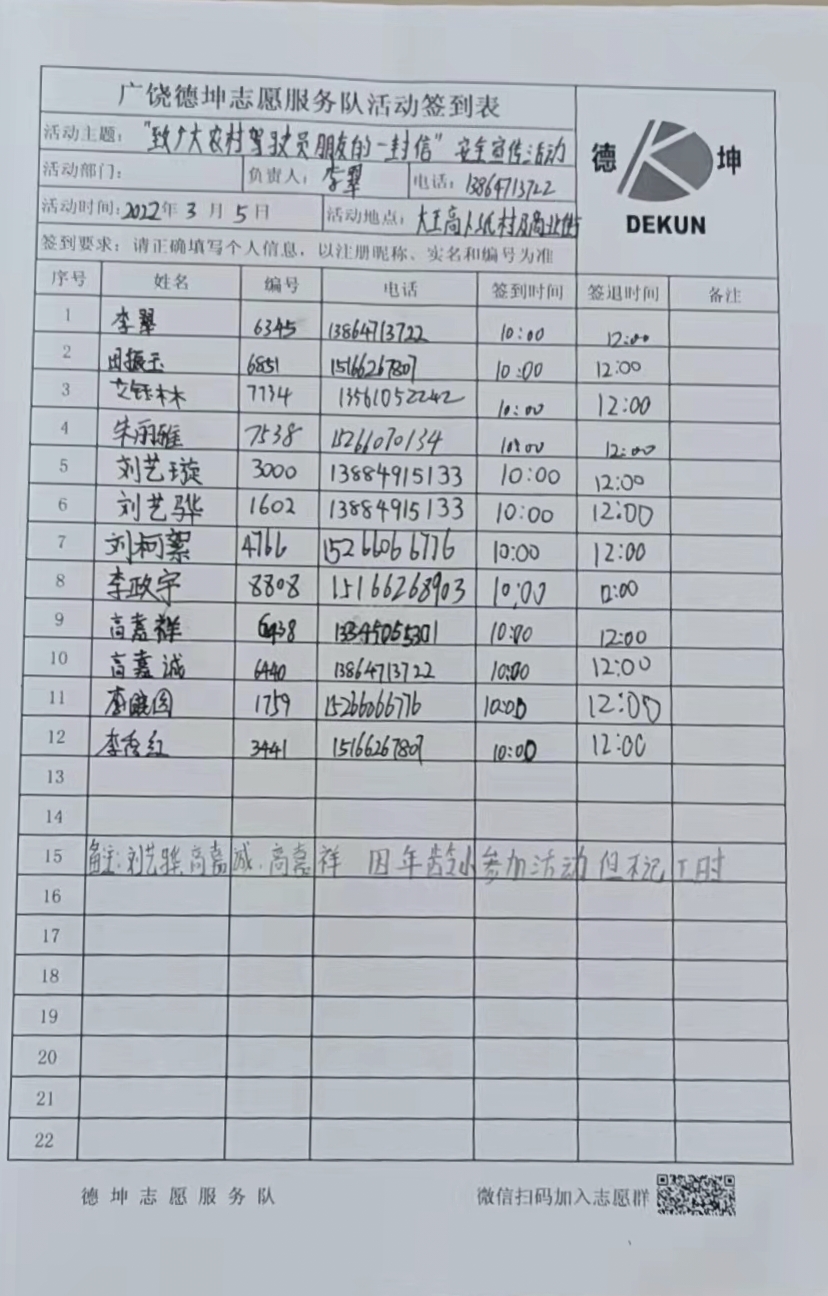 广饶德坤志愿服务队活动签到表
德 坤
DEKUN
活动主题："致广大农村驾驶员朋友的一封信"安全宣传活动
活动部门： 负责人：李翠 电话：13864713722
活动时间：2022年3月5日 活动地点：大王高人 村及商业街
签到要求：请正确填写个人信息，以注册昵称、实名和编号为准
序号 姓名 编号 电话 签到时间 签退时间 备注
1 李翠 6345 13864713722 10:00 12:00
2 田振玉 6851 15166267807 10:00 12:00
3 艾钰林 7734 13561052242 10:00 12:00
4 朱丽雅 7538 15266070134 10:00 12:00
5 刘艺璇 3000 13884915133 10:00 12:00
6 刘艺骅 1602 13884915133 10:00 12:00
7 刘柯絮 4766 15266066776 10:00 12:00
8 李政宇 8808 15166268903 10:00 12:00
9 高嘉祥 6438 13345055301 10:00 12:00
10 高嘉诚 6440 13864713722 10:00 12:00
11 李 1759 15266066776 10:00 12:00
12 李秀红 3441 15166267807 10:00 12:00
13
14
15 备注：刘艺骅、高嘉诚、高嘉祥 因年龄小参加活动但不记工时
16
17
18
19
20
21
22
德坤志愿服务队 微信扫码加入志愿群